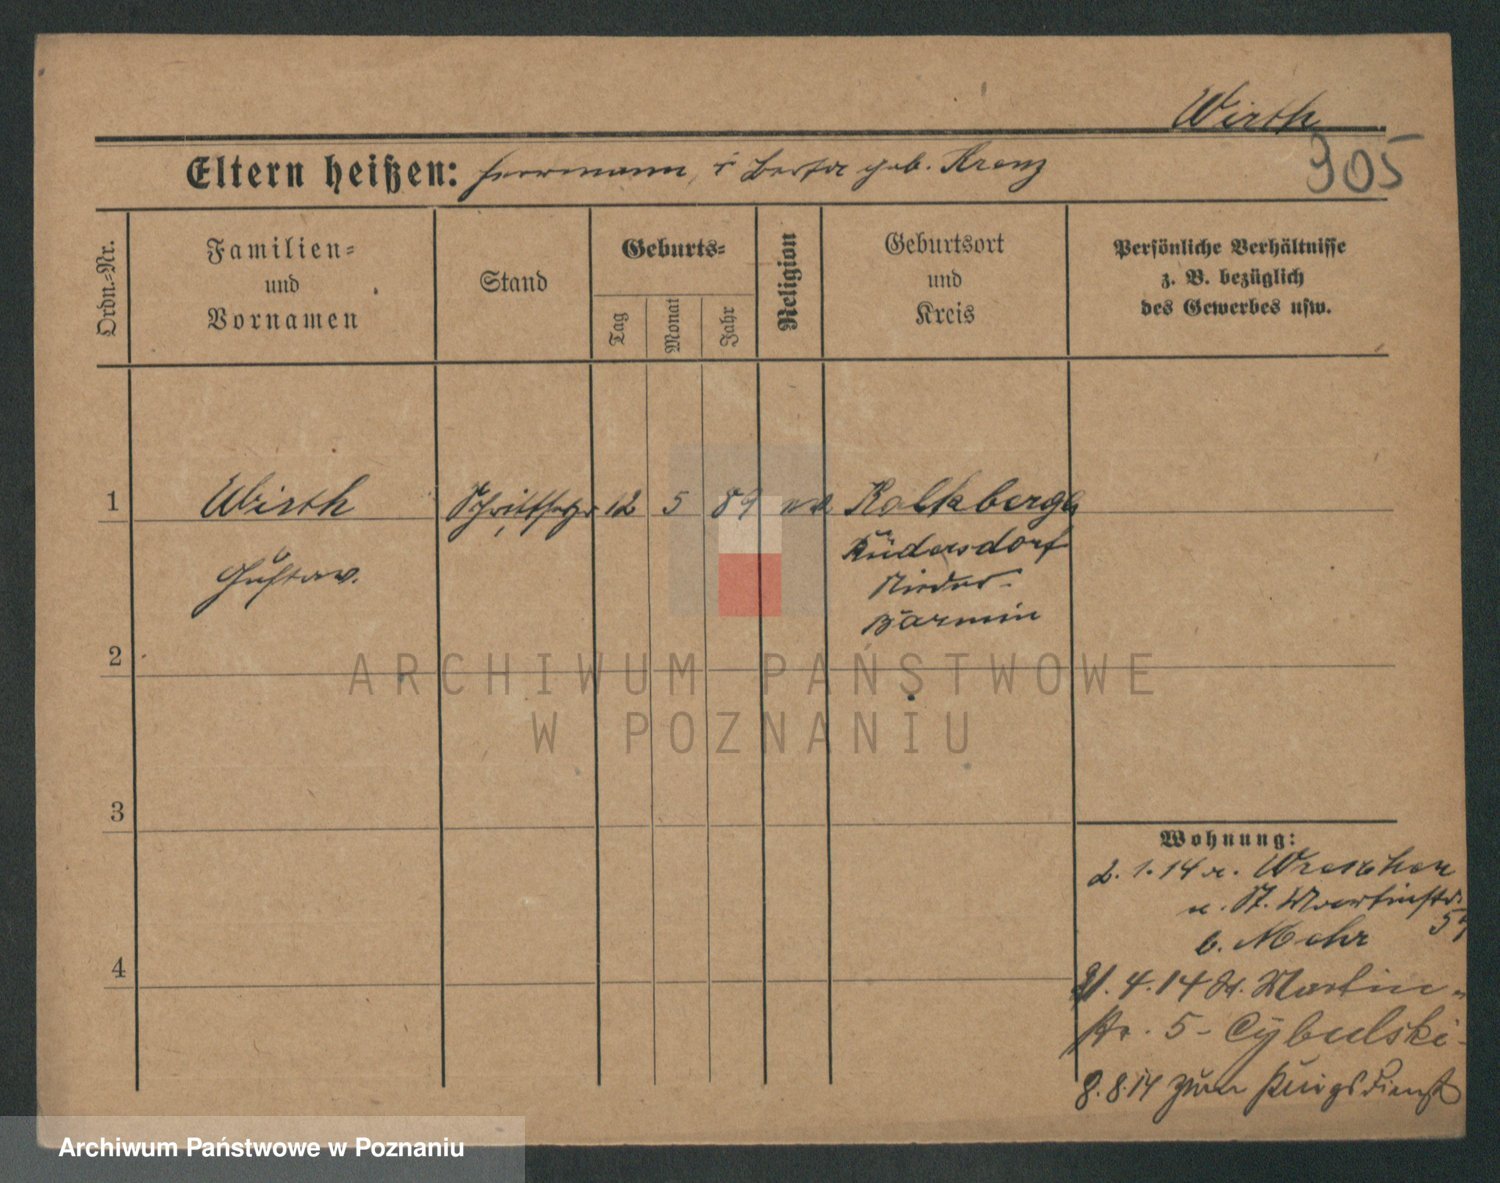 Wirth
305
Eltern heißen: Herrmann, u Berta geb. Krenz
Ordn.=Nr.
Familien=
und
Vornamen
Stand
Geburts=
Tag
Monat
Jahr
Religion
Geburtsort
und
Kreis
Persönliche Verhältnisse
z. B. bezüglich
des Gewerbes usw.
1
Wirth
Schriftsetzer
12
5
89
ev
Kalkberge
Rüdersdorf
Gustav.
Nieder-
Barmin
2
ARCHIWUM PAŃSTWOWE
W POZNANIU
3
Wohnung:
2. 1. 14 v. Wreschen
n. St. Martinstr.
57
b. Mohr
4
21. 4. 14 St. Martin-
str. 5 - Cybulski
8. 8. 14 zum Kriegsdienst
Archiwum Państwowe w Poznaniu